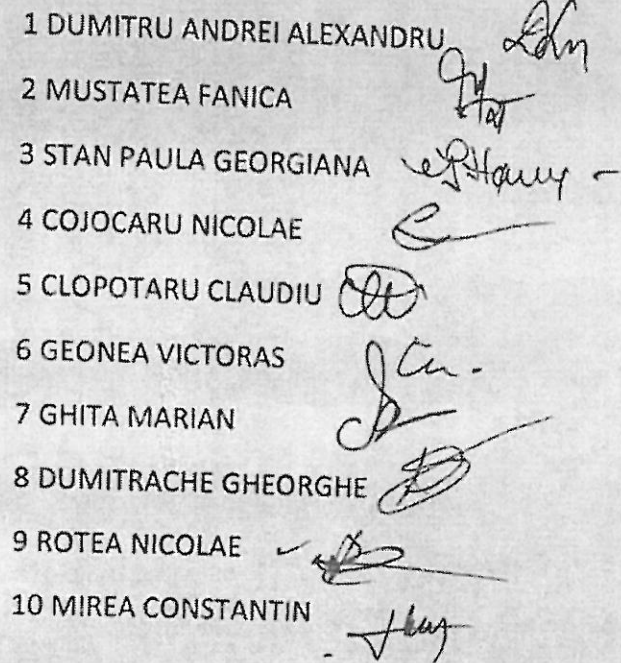 1 DUMITRU ANDREI ALEXANDRU
2 MUSTATEA FANICA
3 STAN PAULA GEORGIANA
4 COJOCARU NICOLAE
5 CLOPOTARU CLAUDIU
6 GEONEA VICTORAS
7 GHITA MARIAN
8 DUMITRACHE GHEORGHE
9 ROTEA NICOLAE
10 MIREA CONSTANTIN